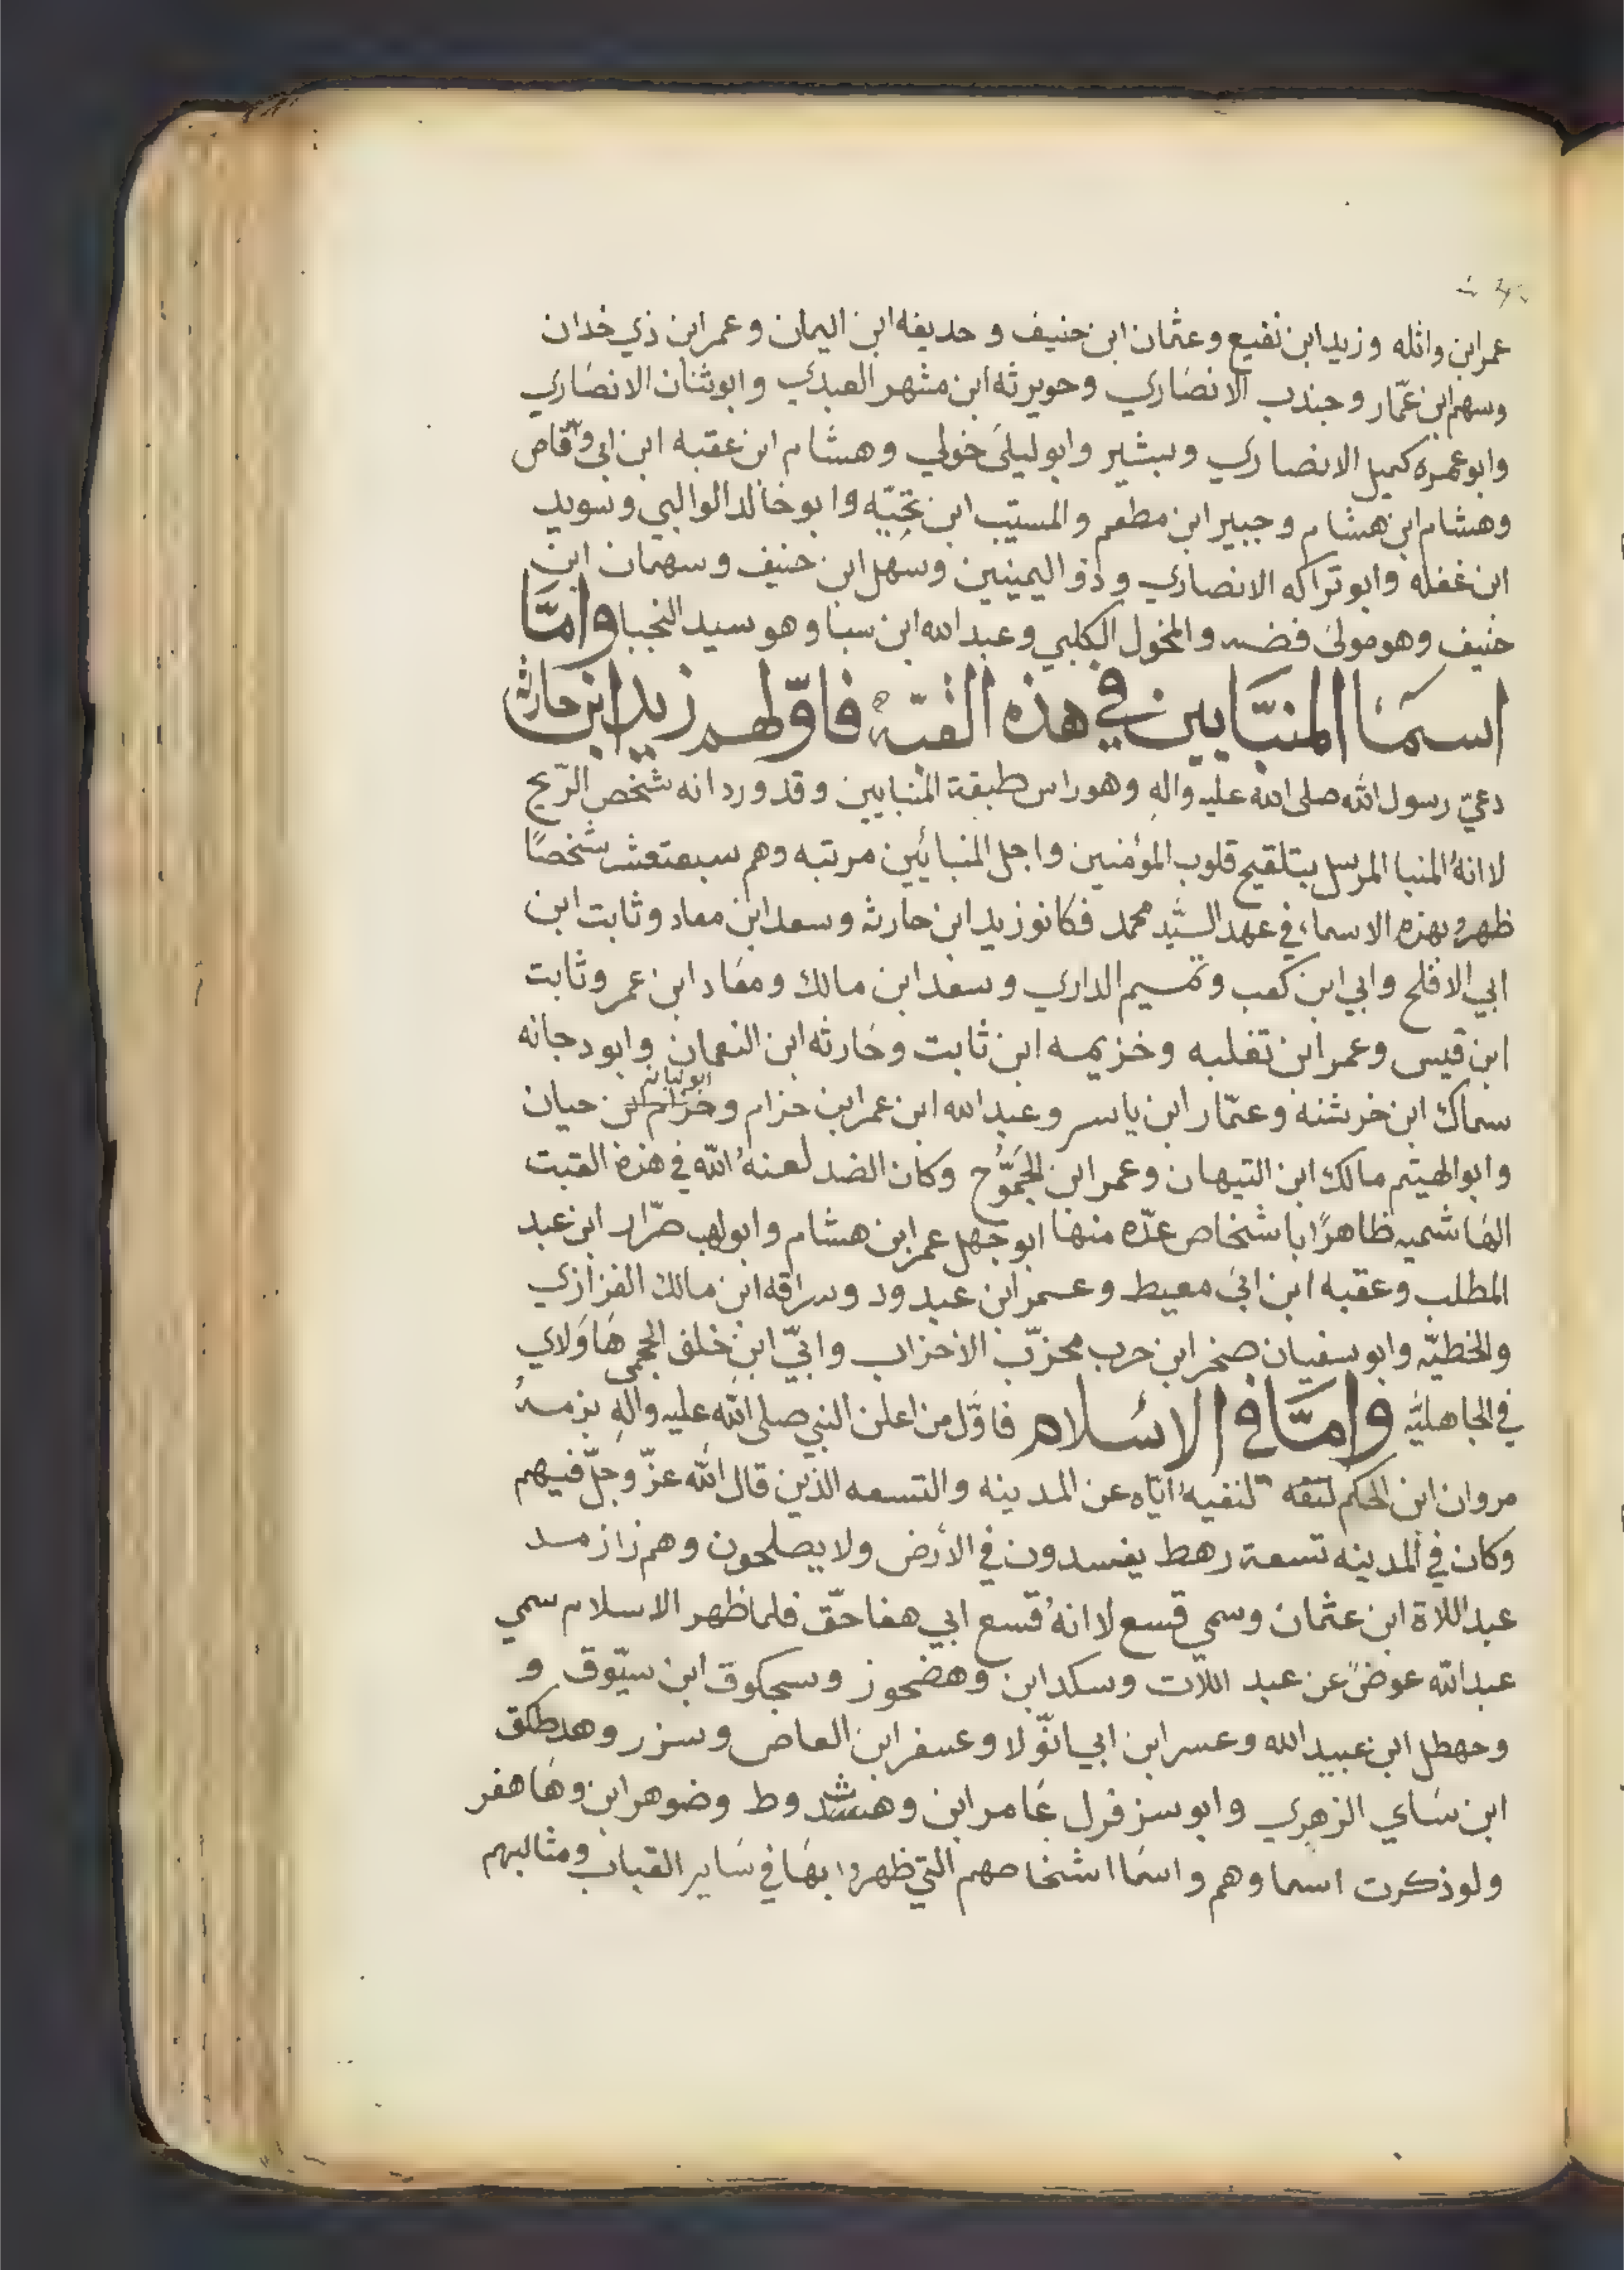 عمر ابن واثله وزيد ابن نفيع وعثمان ابن حنيف و حديفه ابن اليمان وعمر ابن ذي خدان
وسهم ابن عمّار وجندب الانصاري وحويرثه ابن مشهر العبدي وابو ثنان الانصاري
وابو عمره كميل الانصاري وبشير وابو ليلى خولي وهشام ابن عقبه ابن ابي وقّاص
وهشام ابن هشام وجبير ابن مطعم والمسيّب ابن نجيّه وابو خالد الوالبي وسويد
ابن غفله وابو تراكه الانصاري وذو اليمينين وسهل ابن حنيف وسهمان ابن
حنيف وهو مولى فضه والمخول الكلبي وعبد الله ابن سبا وهو سيد النجبا وامّا
اسمآ المنبّايين في هذه القبّه فاوّلهم زيد ابن حارثه
دعيّ رسول الله صلى الله عليه واله وهو راس طبقة المنبايين وقد ورد انه شخص الرّيح
لاانهُ المنبا المرسل بتلقيح قلوب المؤمنين واجل المنبائين مرتبه وهم سبعتعشر شخصًا
ظهرو بهذه الاسماء في عهد السّيد محمد فكانو زيد ابن حارثه وسعد ابن معاد وثابت ابن
ابي الافلح وابي ابن كعب وتميم الداري وسعد ابن مالك ومعاد ابن عمر وثابت
ابن قيس وعمر ابن تغلبه وخزيمه ابن ثابت وحارثه ابن النعمان وابو دجانه
سماك ابن خرشنه وعمّار ابن ياسر وعبد الله ابن عمر ابن حزام وحزام ابن حيان
وابو الهيتم مالك ابن التيهان وعمر ابن الجَمّوُح وكان الضد لعنهُ الله في هذه القبت
الهاشميه ظاهرًا باشخاص عدّه منها ابو جهل عمر ابن هشام وابو لهب ضرّار ابن عبد
المطلب وعقبه ابن ابي معيط وعمر ابن عبد ود وسراقه ابن مالك الفزازي
والخطيّه وابو سفيان صخر ابن حرب محزّب الاحزاب وابيّ ابن خلف الجمحى هاولاي
في الجاهليّه وامّا في الاسلام فاوّل من اعلن النبي صلى الله عليه واله بزمه
مروان ابن الحكم لنفيهُ ايّاه عن المدينه والتسعه الذين قال الله عزّ وجلّ فيهم
وكان في المدينه تسعة رهط يفسدون في الأرض ولا يصلحون وهم زازمد
عبد اللاة ابن عثمان وسمي قسع لاانهُ قسع ابي هفاحقّ فلما ظهر الاسلام سمي
عبد الله عوضً عن عبد اللآت وسكد ابن وهضحوز وسجكوق ابن سيّوق و
وحهطل ابن عبيد الله وعسر ابن ابي انوّلا وعسفر ابن العاص وسزر وهدطكق
ابن ساي الزهري وابو سزفرل عامر ابن وهشدوط وضوهر ابن وهاهفر
ولو ذكرت اسماوهم واسما اشخاصهم التي ظهروا بها في ساير القباب ومثالبهم